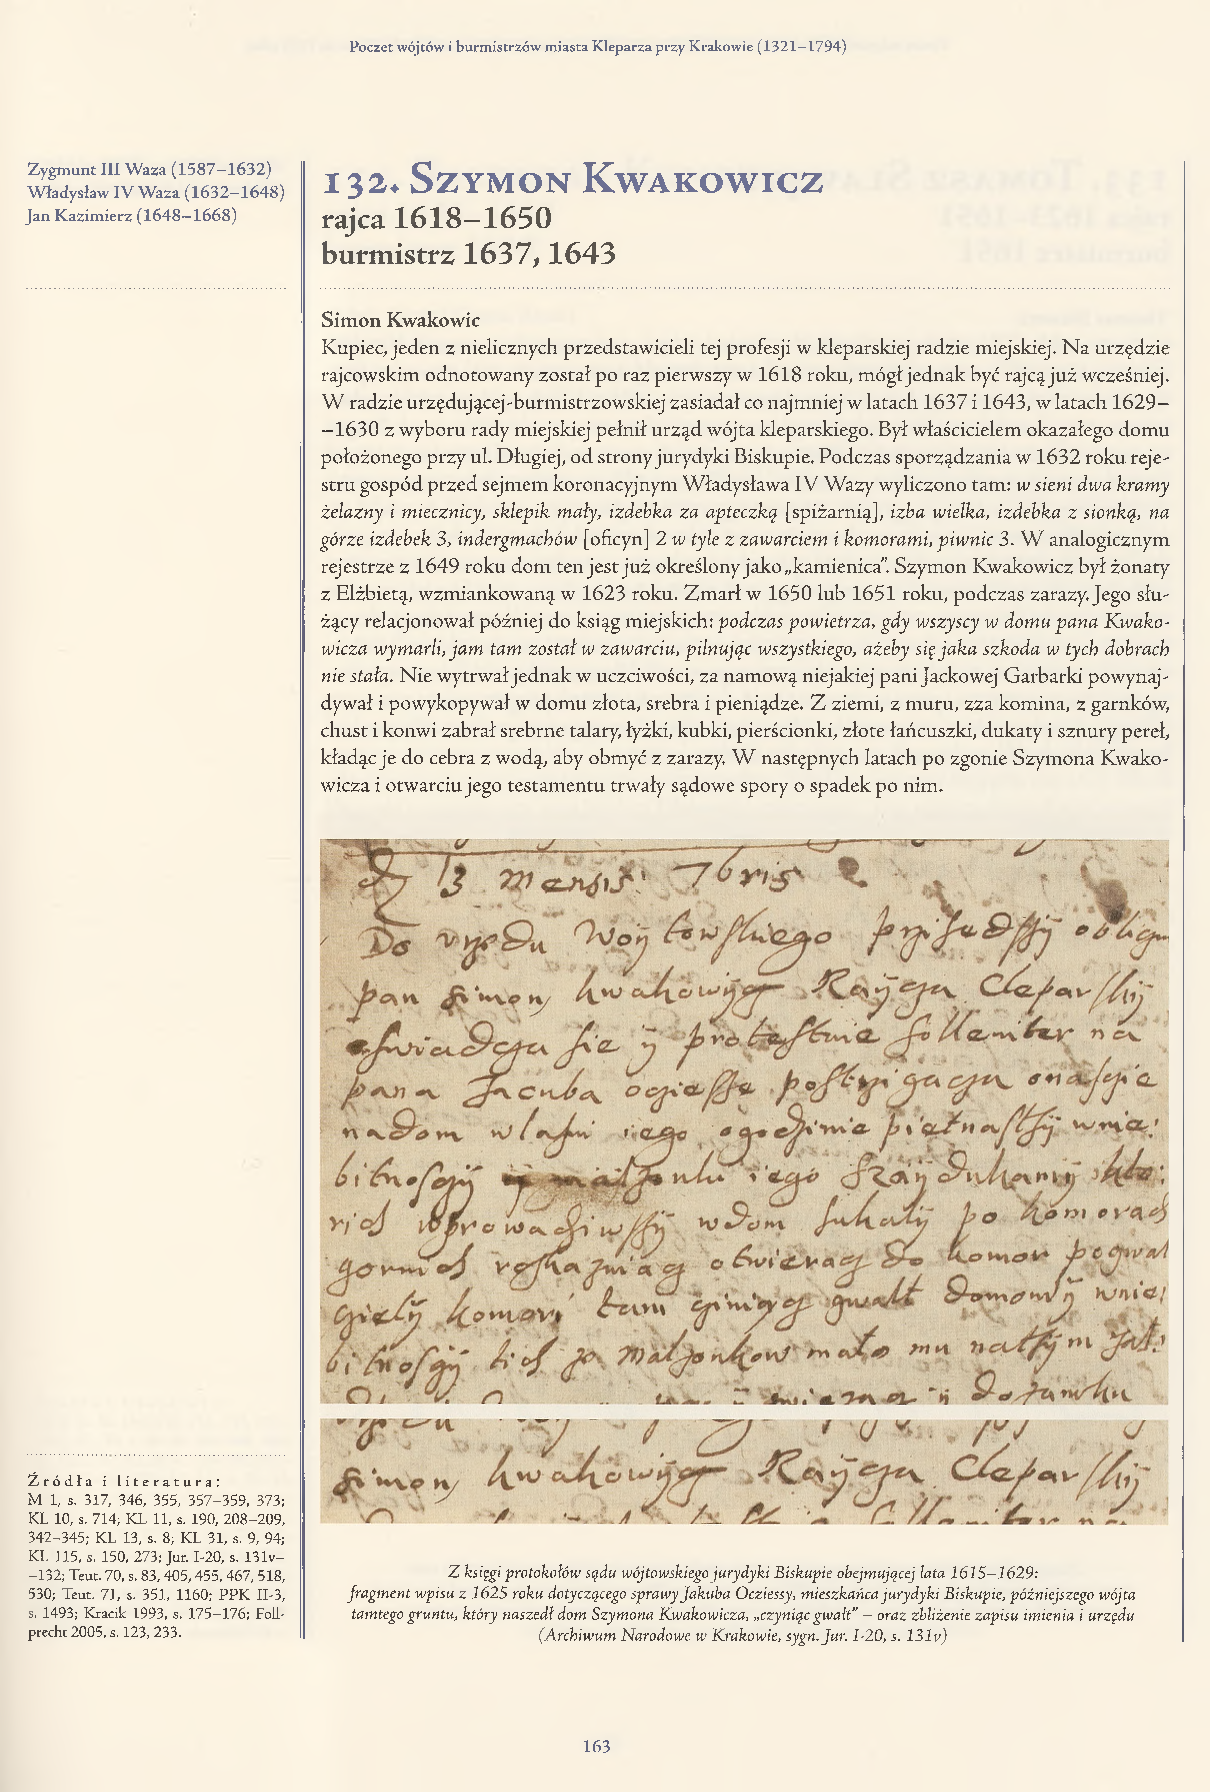 Poczet wójtów i burmistrzów miasta Kleparza przy Krakowie (1321–1794)
Zygmunt III Waza (1587–1632)
Władysław IV Waza (1632–1648)
Jan Kazimierz (1648–1668)
132. Szymon Kwakowicz
rajca 1618–1650
burmistrz 1637, 1643
Simon Kwakowic
Kupiec, jeden z nielicznych przedstawicieli tej profesji w kleparskiej radzie miejskiej. Na urzędzie
rajcowskim odnotowany został po raz pierwszy w 1618 roku, mógł jednak być rajcą już wcześniej.
W radzie urzędującej-burmistrzowskiej zasiadał co najmniej w latach 1637 i 1643, w latach 1629–
–1630 z wyboru rady miejskiej pełnił urząd wójta kleparskiego. Był właścicielem okazałego domu
położonego przy ul. Długiej, od strony jurydyki Biskupie. Podczas sporządzania w 1632 roku reje-
stru gospód przed sejmem koronacyjnym Władysława IV Wazy wyliczono tam: w sieni dwa kramy
żelazny i miecznicy, sklepik mały, izdebka za apteczką [spiżarnią], izba wielka, izdebka z sionką, na
górze izdebek 3, indergmachów [oficyn] 2 w tyle z zawarciem i komorami, piwnic 3. W analogicznym
rejestrze z 1649 roku dom ten jest już określony jako „kamienica”. Szymon Kwakowicz był żonaty
z Elżbietą, wzmiankowaną w 1623 roku. Zmarł w 1650 lub 1651 roku, podczas zarazy. Jego słu-
żący relacjonował później do ksiąg miejskich: podczas powietrza, gdy wszyscy w domu pana Kwako-
wicza wymarli, jam tam został w zawarciu, pilnując wszystkiego, ażeby się jaka szkoda w tych dobrach
nie stała. Nie wytrwał jednak w uczciwości, za namową niejakiej pani Jackowej Garbarki powynaj-
dywał i powykopywał w domu złota, srebra i pieniądze. Z ziemi, z muru, zza komina, z garnków,
chust i konwi zabrał srebrne talary, łyżki, kubki, pierścionki, złote łańcuszki, dukaty i sznury pereł,
kładąc je do cebra z wodą, aby obmyć z zarazy. W następnych latach po zgonie Szymona Kwako-
wicza i otwarciu jego testamentu trwały sądowe spory o spadek po nim.
13 mensis 7bris
Do vrzedu Woytowskiego przisedssÿ
pan simon kwakowÿc Raÿcza Cleparskÿ
oswiadcza sie ÿ protestuie sollemniter na
pana Jacuba
nadom wlasni iego ogodzinie piętnastÿ wnie:
bitnosczÿ iego
wprowadziwssÿ wdom sukalÿ po komorach
gornich roskazuiacz otwieracz do komor
komori tam cziniącz gwałt domowÿ wnie:
bitnosczÿ tich malzonkow mało mu
simon kwakowÿc Raÿcza Cleparskÿ
Źródła i literatura:
M 1, s. 317, 346, 355, 357–359, 373;
KL 10, s. 714; KL 11, s. 190, 208–209,
342–345; KL 13, s. 8; KL 31, s. 9, 94;
KL 115, s. 150, 273; Jur. I-20, s. 131v–
–132; Teut. 70, s. 83, 405, 455, 467, 518,
530; Teut. 71, s. 351, 1160; PPK II-3,
s. 1493; Kracik 1993, s. 175–176; Foll-
precht 2005, s. 123, 233.
Z księgi protokołów sądu wójtowskiego jurydyki Biskupie obejmującej lata 1615–1629:
fragment wpisu z 1625 roku dotyczącego sprawy Jakuba Ocziessy, mieszkańca jurydyki Biskupie, późniejszego wójta
tamtego gruntu, który naszedł dom Szymona Kwakowicza, „czyniąc gwałt” – oraz zbliżenie zapisu imienia i urzędu
(Archiwum Narodowe w Krakowie, sygn. Jur. I-20, s. 131v)
163